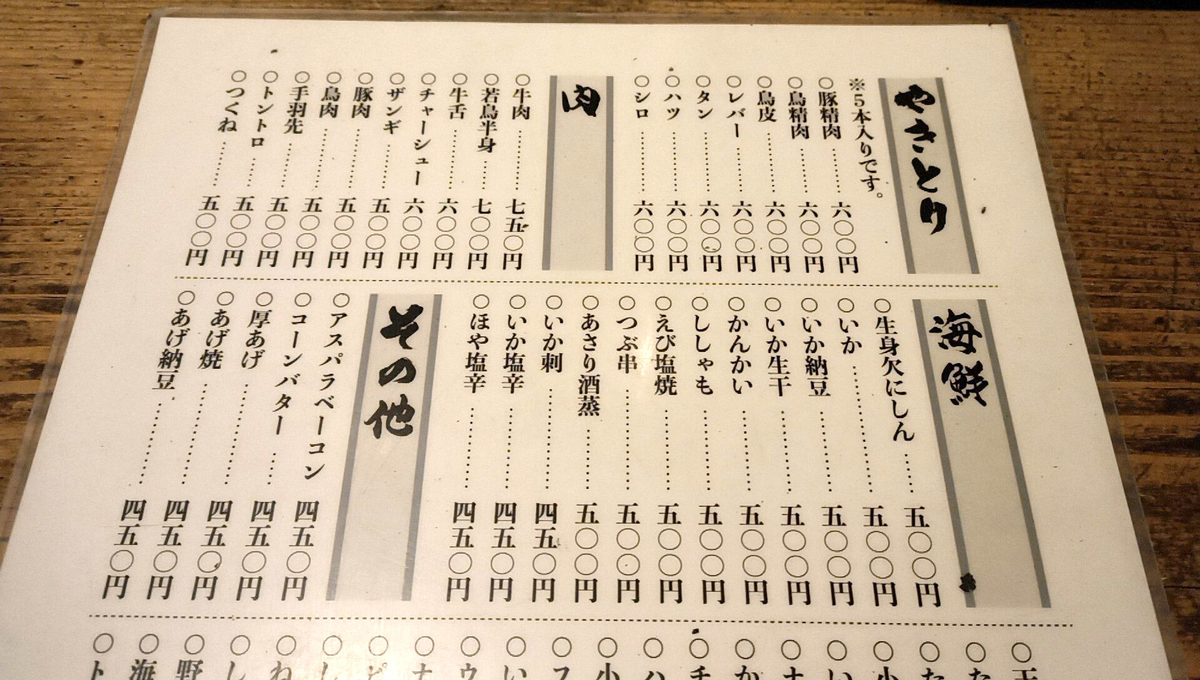 やきとり
※５本入りです。
○豚精肉………六〇〇円
○鳥精肉………六〇〇円
○鳥皮…………六〇〇円
○レバー………六〇〇円
○タン…………六〇〇円
○ハツ…………六〇〇円
○シロ…………六〇〇円
肉
○牛肉…………七五〇円
○若鳥半身……七〇〇円
○牛舌…………六〇〇円
○チャーシュー…六〇〇円
○ザンギ………五〇〇円
○豚肉…………五〇〇円
○鳥肉…………五〇〇円
○手羽先………五〇〇円
○トントロ……五〇〇円
○つくね………五〇〇円
海鮮
○生身欠にしん……五〇〇円
○いか…………五〇〇円
○いか納豆……五〇〇円
○いか生干……五〇〇円
○かんかい……五〇〇円
○ししゃも……五〇〇円
○えび塩焼……五〇〇円
○つぶ串………五〇〇円
○あさり酒蒸……五〇〇円
○いか刺………四五〇円
○いか塩辛……四五〇円
○ほや塩辛……四五〇円
その他
○アスパラベーコン…四五〇円
○コーンバター……四五〇円
○厚あげ………四五〇円
○あげ焼………四五〇円
○あげ納豆……四五〇円